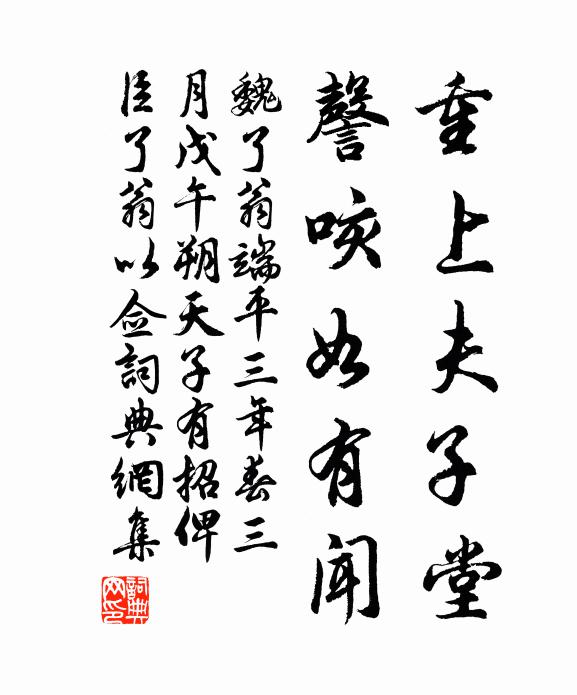 重上夫子堂
謦咳如有聞
魏了翁端平三年春三
月戊午朔天子有招俾
臣了翁以僉詞典網集
詞典
网印